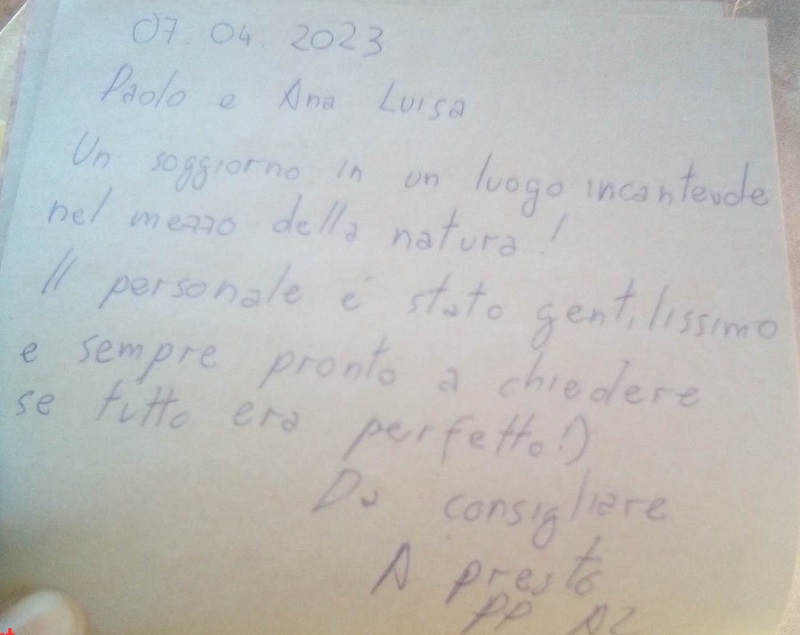 07.04.2023
Paolo e Ana Luisa
Un soggiorno in un luogo incantevole
nel mezzo della natura!
Il personale é stato gentilissimo
e sempre pronto a chiedere
se tutto era perfetto!)
Da consigliare
A presto
PP